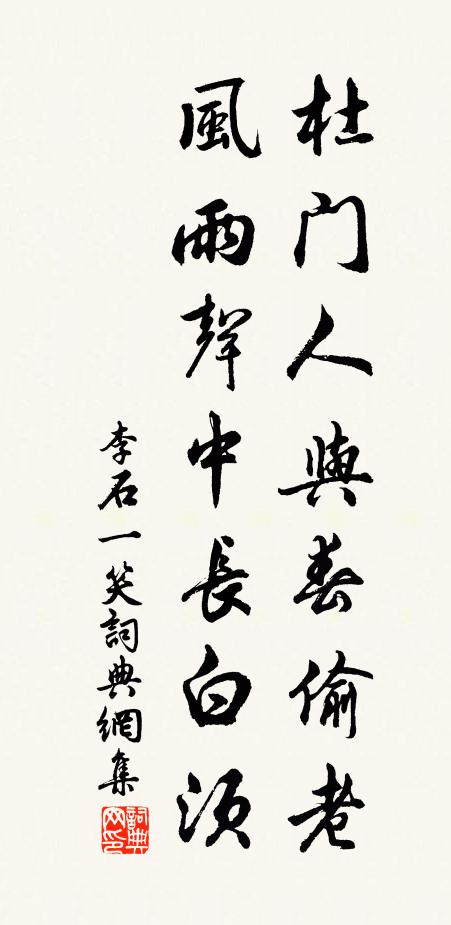 杜門人與春偷老
風雨聲中長白須
李石一笑詞典網集
詞典
网印